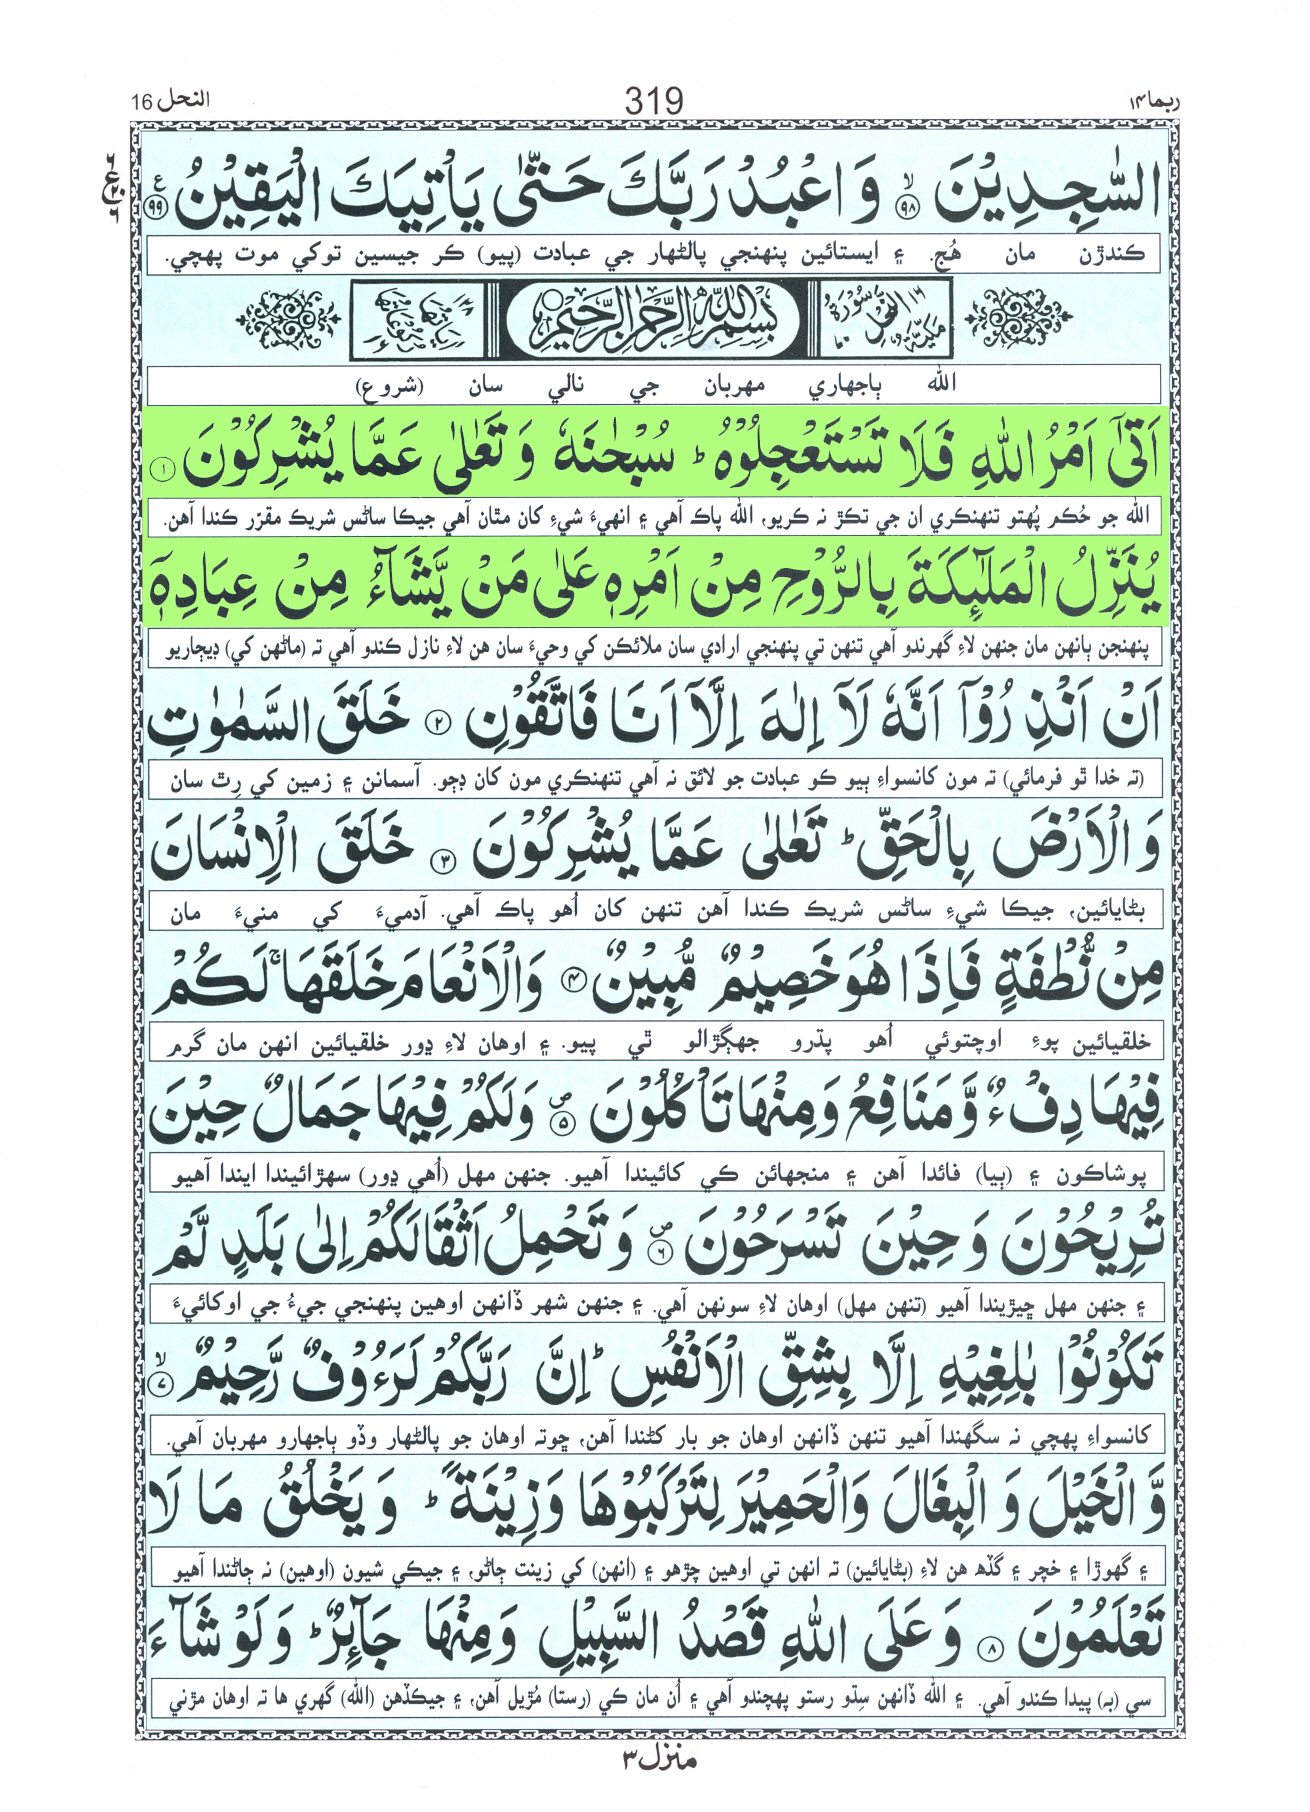 ربما١٤ 319 النحل 16
السّٰجِدِيْنَ ۙ﴿٩٨﴾ وَ اعْبُدْ رَبَّكَ حَتّٰى يَاْتِيَكَ الْيَقِيْنُ ﴿٩٩﴾ ع
ڪندڙن مان هُج. ۽ ايستائين پنهنجي پالڻهار جي عبادت (پيو) ڪر جيسين توکي موت پهچي.
سُوْرَةُ النَّحْلِ مَكِّيَّةٌ بِسْمِ اللّٰهِ الرَّحْمٰنِ الرَّحِيْمِ اٰيَاتُهَا ١٢٨ رُكُوْعَاتُهَا
الله ٻاجهاري مهربان جي نالي سان (شروع)
اَتٰٓى اَمْرُ اللّٰهِ فَلَا تَسْتَعْجِلُوْهُ ؕ سُبْحٰنَهٗ وَ تَعٰلٰى عَمَّا يُشْرِكُوْنَ ﴿١﴾
الله جو حُڪم پُهتو تنهنڪري ان جي تڪڙ نہ ڪريو، الله پاڪ آهي ۽ انهيءَ شيءِ کان مٿان آهي جيڪا ساڻس شريڪ مقرّر ڪندا آهن.
يُنَزِّلُ الْمَلٰٓئِكَةَ بِالرُّوْحِ مِنْ اَمْرِهٖ عَلٰى مَنْ يَّشَآءُ مِنْ عِبَادِهٖٓ
پنهنجن ٻانهن مان جنهن لاءِ گهرندو آهي تنهن تي پنهنجي ارادي سان ملائڪن کي وحيءَ سان هن لاءِ نازل ڪندو آهي تہ (ماڻهن کي) ڊيڄاريو
اَنْ اَنْذِرُوْٓا اَنَّهٗ لَآ اِلٰهَ اِلَّآ اَنَا فَاتَّقُوْنِ ﴿٢﴾ خَلَقَ السَّمٰوٰتِ
(تہ خدا ٿو فرمائي) تہ مون کانسواءِ ٻيو ڪو عبادت جو لائق نہ آهي تنهنڪري مون کان ڊڄو. آسمانن ۽ زمين کي رِٿ سان
وَ الْاَرْضَ بِالْحَقِّ ؕ تَعٰلٰى عَمَّا يُشْرِكُوْنَ ﴿٣﴾ خَلَقَ الْاِنْسَانَ
بڻايائين، جيڪا شيءِ ساڻس شريڪ ڪندا آهن تنهن کان اُهو پاڪ آهي. آدميءَ کي منيءَ مان
مِنْ نُّطْفَةٍ فَاِذَا هُوَ خَصِيْمٌ مُّبِيْنٌ ﴿٤﴾ وَالْاَنْعَامَ خَلَقَهَا ۚ لَكُمْ
خلقيائين پوءِ اوچتوئي اُهو پڌرو جهڳڙالو ٿي پيو. ۽ اوهان لاءِ ڍور خلقيائين انهن مان گرم
فِيْهَا دِفْءٌ وَّ مَنَافِعُ وَ مِنْهَا تَاْكُلُوْنَ ۪﴿٥﴾ وَلَكُمْ فِيْهَا جَمَالٌ حِيْنَ
پوشاڪون ۽ (ٻيا) فائدا آهن ۽ منجهائن کي کائيندا آهيو. جنهن مهل (اُهي ڍور) سهڙائيندا ايندا آهيو
تُرِيْحُوْنَ وَ حِيْنَ تَسْرَحُوْنَ ۪﴿٦﴾ وَ تَحْمِلُ اَثْقَالَكُمْ اِلٰى بَلَدٍ لَّمْ
۽ جنهن مهل ڇيڙيندا آهيو (تنهن مهل) اوهان لاءِ سونهن آهي. ۽ جنهن شهر ڏانهن اوهين پنهنجي جيءُ جي اوکائيءَ
تَكُوْنُوْا بٰلِغِيْهِ اِلَّا بِشِقِّ الْاَنْفُسِ ؕ اِنَّ رَبَّكُمْ لَرَءُوْفٌ رَّحِيْمٌ ۙ﴿٧﴾
کانسواءِ پهچي نہ سگهندا آهيو تنهن ڏانهن اوهان جو بار کڻندا آهن، ڇوتہ اوهان جو پالڻهار وڏو ٻاجهارو مهربان آهي.
وَّ الْخَيْلَ وَ الْبِغَالَ وَالْحَمِيْرَ لِتَرْكَبُوْهَا وَزِيْنَةً ؕ وَ يَخْلُقُ مَا لَا
۽ گهوڙا ۽ خچر ۽ گڏهہ هن لاءِ (بڻايائين) تہ انهن تي اوهين چڙهو ۽ (انهن) کي زينت ڄاڻو، ۽ جيڪي شيون (اوهين) نہ ڄاڻندا آهيو
تَعْلَمُوْنَ ﴿٨﴾ وَ عَلَى اللّٰهِ قَصْدُ السَّبِيْلِ وَمِنْهَا جَآئِرٌ ؕ وَ لَوْ شَآءَ
سي (بہ) پيدا ڪندو آهي. ۽ الله ڏانهن سِڌو رستو پهچندو آهي ۽ اُن مان ڪي (رستا) مُڙيل آهن، ۽ جيڪڏهن (الله) گهري ها تہ اوهان مڙني
منزل ٣